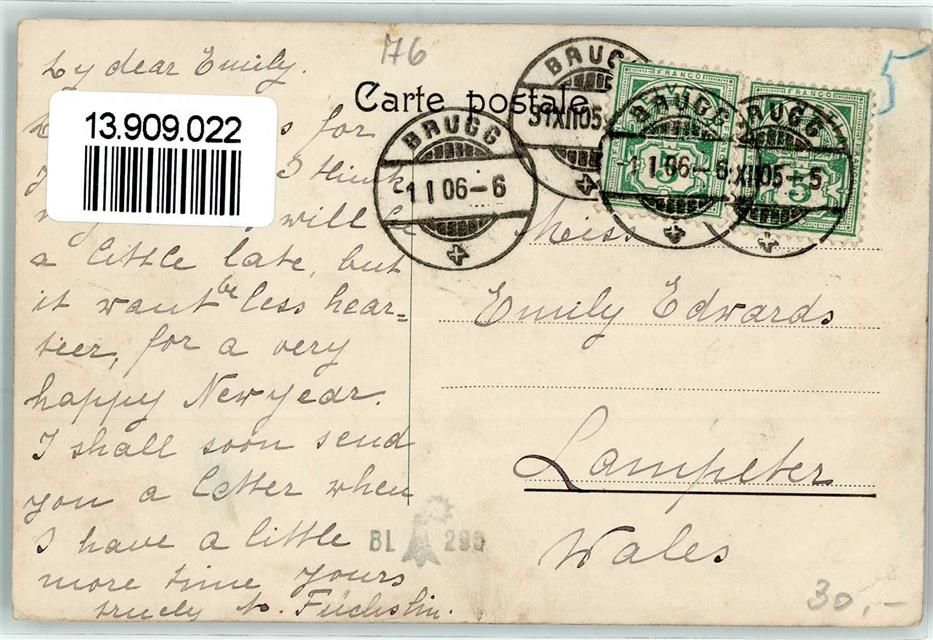 My dear Emily.
176
5
Carte postale
BRUGG
31 XII 05
BRUGG
-1 I 06-6
BRUGG
-1 I 06-6
BRUGG
XII 05-5
FRANCO
FRANCO
5
5
13.909.022
s for
I think
will be
a little late, but
it want be less hear=
tier, for a very
happy New year.
I shall soon send
you a letter when
I have a little
more time yours
truely Fuchslin.
Miss
Emily Edwards
Lampeter
Wales
BL 290
30,-